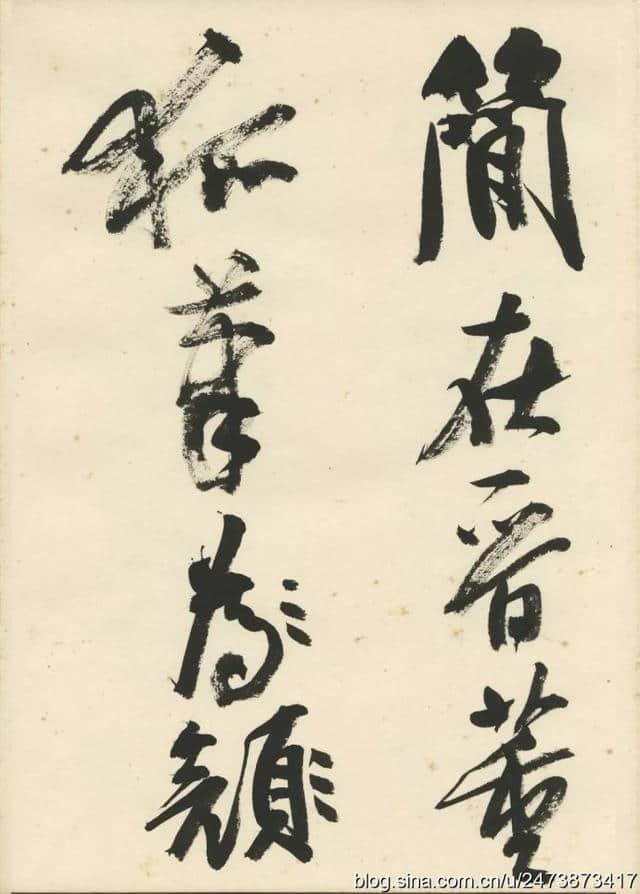 簡在晋董
狐筆為顏
blog.sina.com.cn/u/2473873417